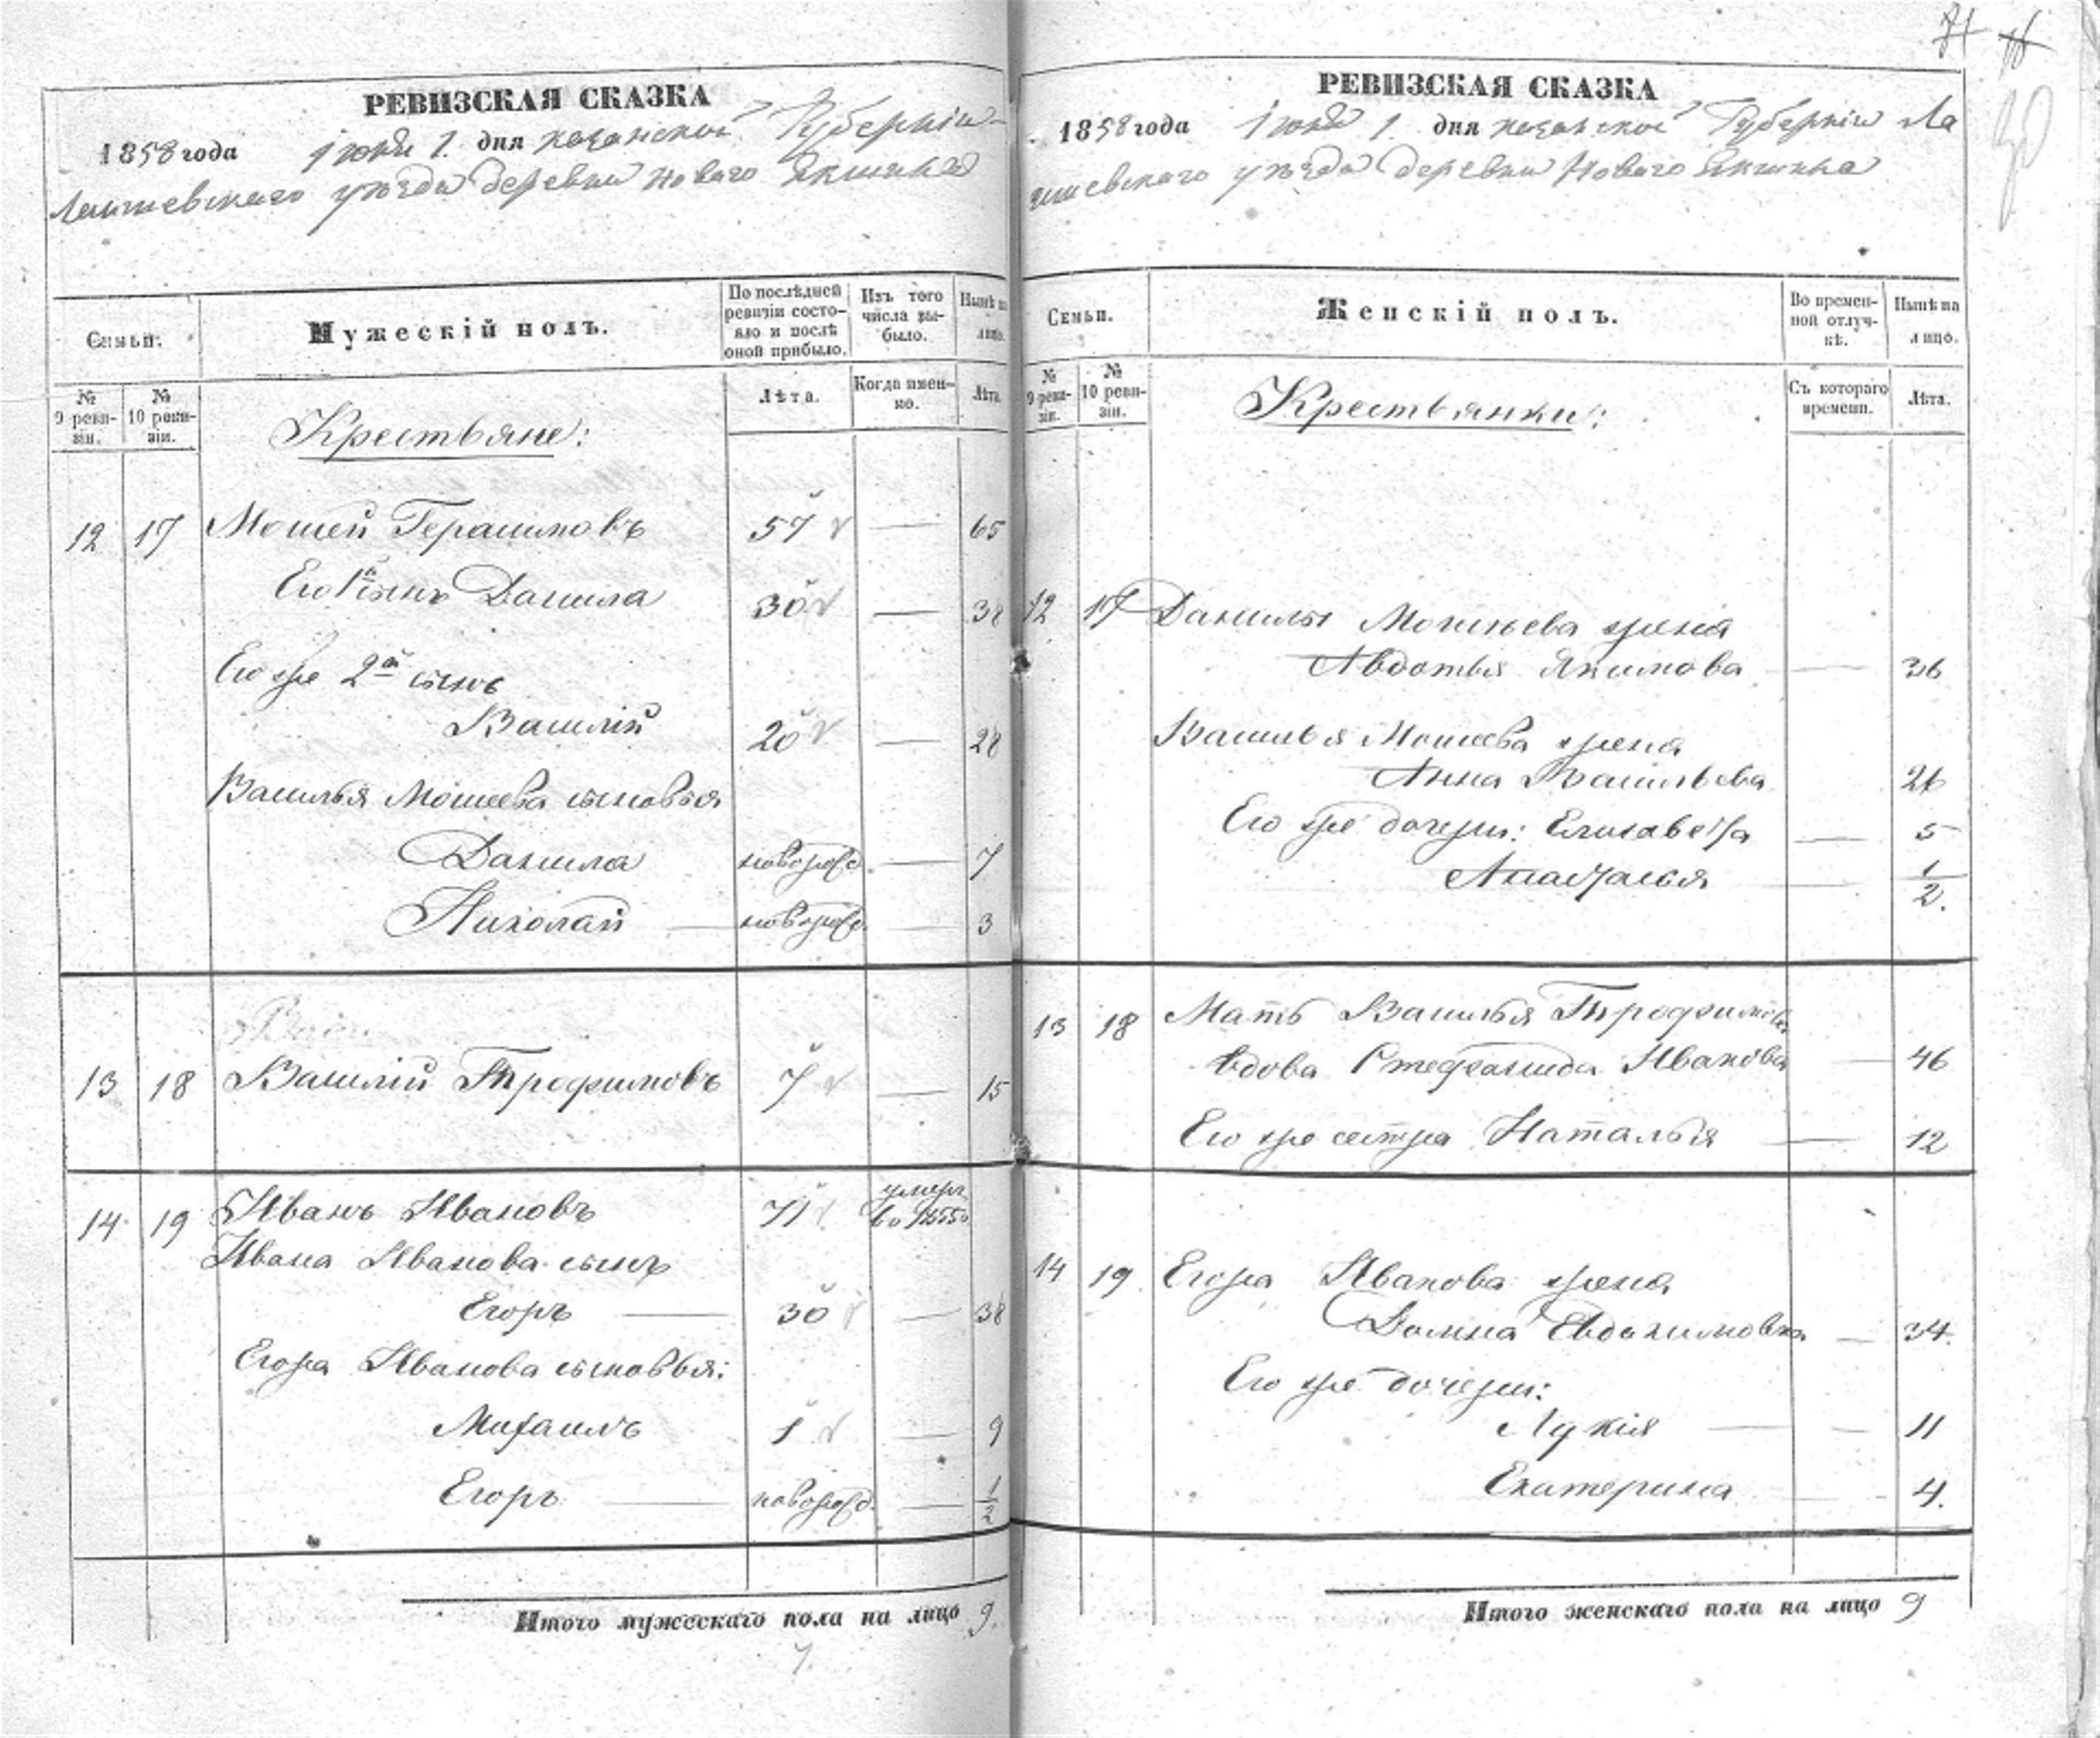 РЕВИЗСКАЯ СКАЗКА
1858 года Іюня 1. дня Казанской Губерніи
Лаишевскаго уѣзда деревни Новаго Якшина
Семьи.
Мужескій полъ.
По послѣдней ревизіи состояло и послѣ оной прибыло.
Изъ того числа выбыло.
Нынѣ на лицо.
№ 9 ревизіи.
№ 10 ревизіи.
Лѣта.
Когда именно.
Лѣта.
Крестьяне:
12 17 Мосей Герасимовъ 57 — 65
Его 1й сынъ Данила 30 — 38
Его же 2й сынъ
Василій 20 — 28
Василья Мосеева сыновья
Данила новорожд. — 7
Николай — новорожд. — 3
13 18 Василій Трофимовъ 7 — 15
14 19 Иванъ Ивановъ 71 умеръ во 1855
Ивана Иванова сынъ
Егоръ — 30 — 38
Егора Иванова сыновья:
Михаилъ 1 — 9
Егоръ — новорожд. — 1/2
Итого мужескаго пола на лицо 9.
РЕВИЗСКАЯ СКАЗКА
1858 года Іюня 1. дня Казанской Губерніи Ла
ишевскаго уѣзда деревни Новаго Якшина
Семьи.
Женскій полъ.
Во временной отлучкѣ.
Нынѣ на лицо.
№ 9 ревизіи.
№ 10 ревизіи.
Съ котораго времени.
Лѣта.
Крестьянки:
12 17 Данилы Мосѣева жена
Авдотья Якимова — 36
Василья Мосеева жена
Анна Васильева 26
Его же дочери: Елизавета — 5
Анастасья — 1/2.
13 18 Мать Василья Трофимова
вдова Стефанида Иванова — 46
Его же сестра Наталья — 12
14 19 Егора Иванова жена
Домна Евдокимовна — 34.
Его же дочери:
Лукія — — 11
Екатерина — 4.
Итого женскаго пола на лицо 9